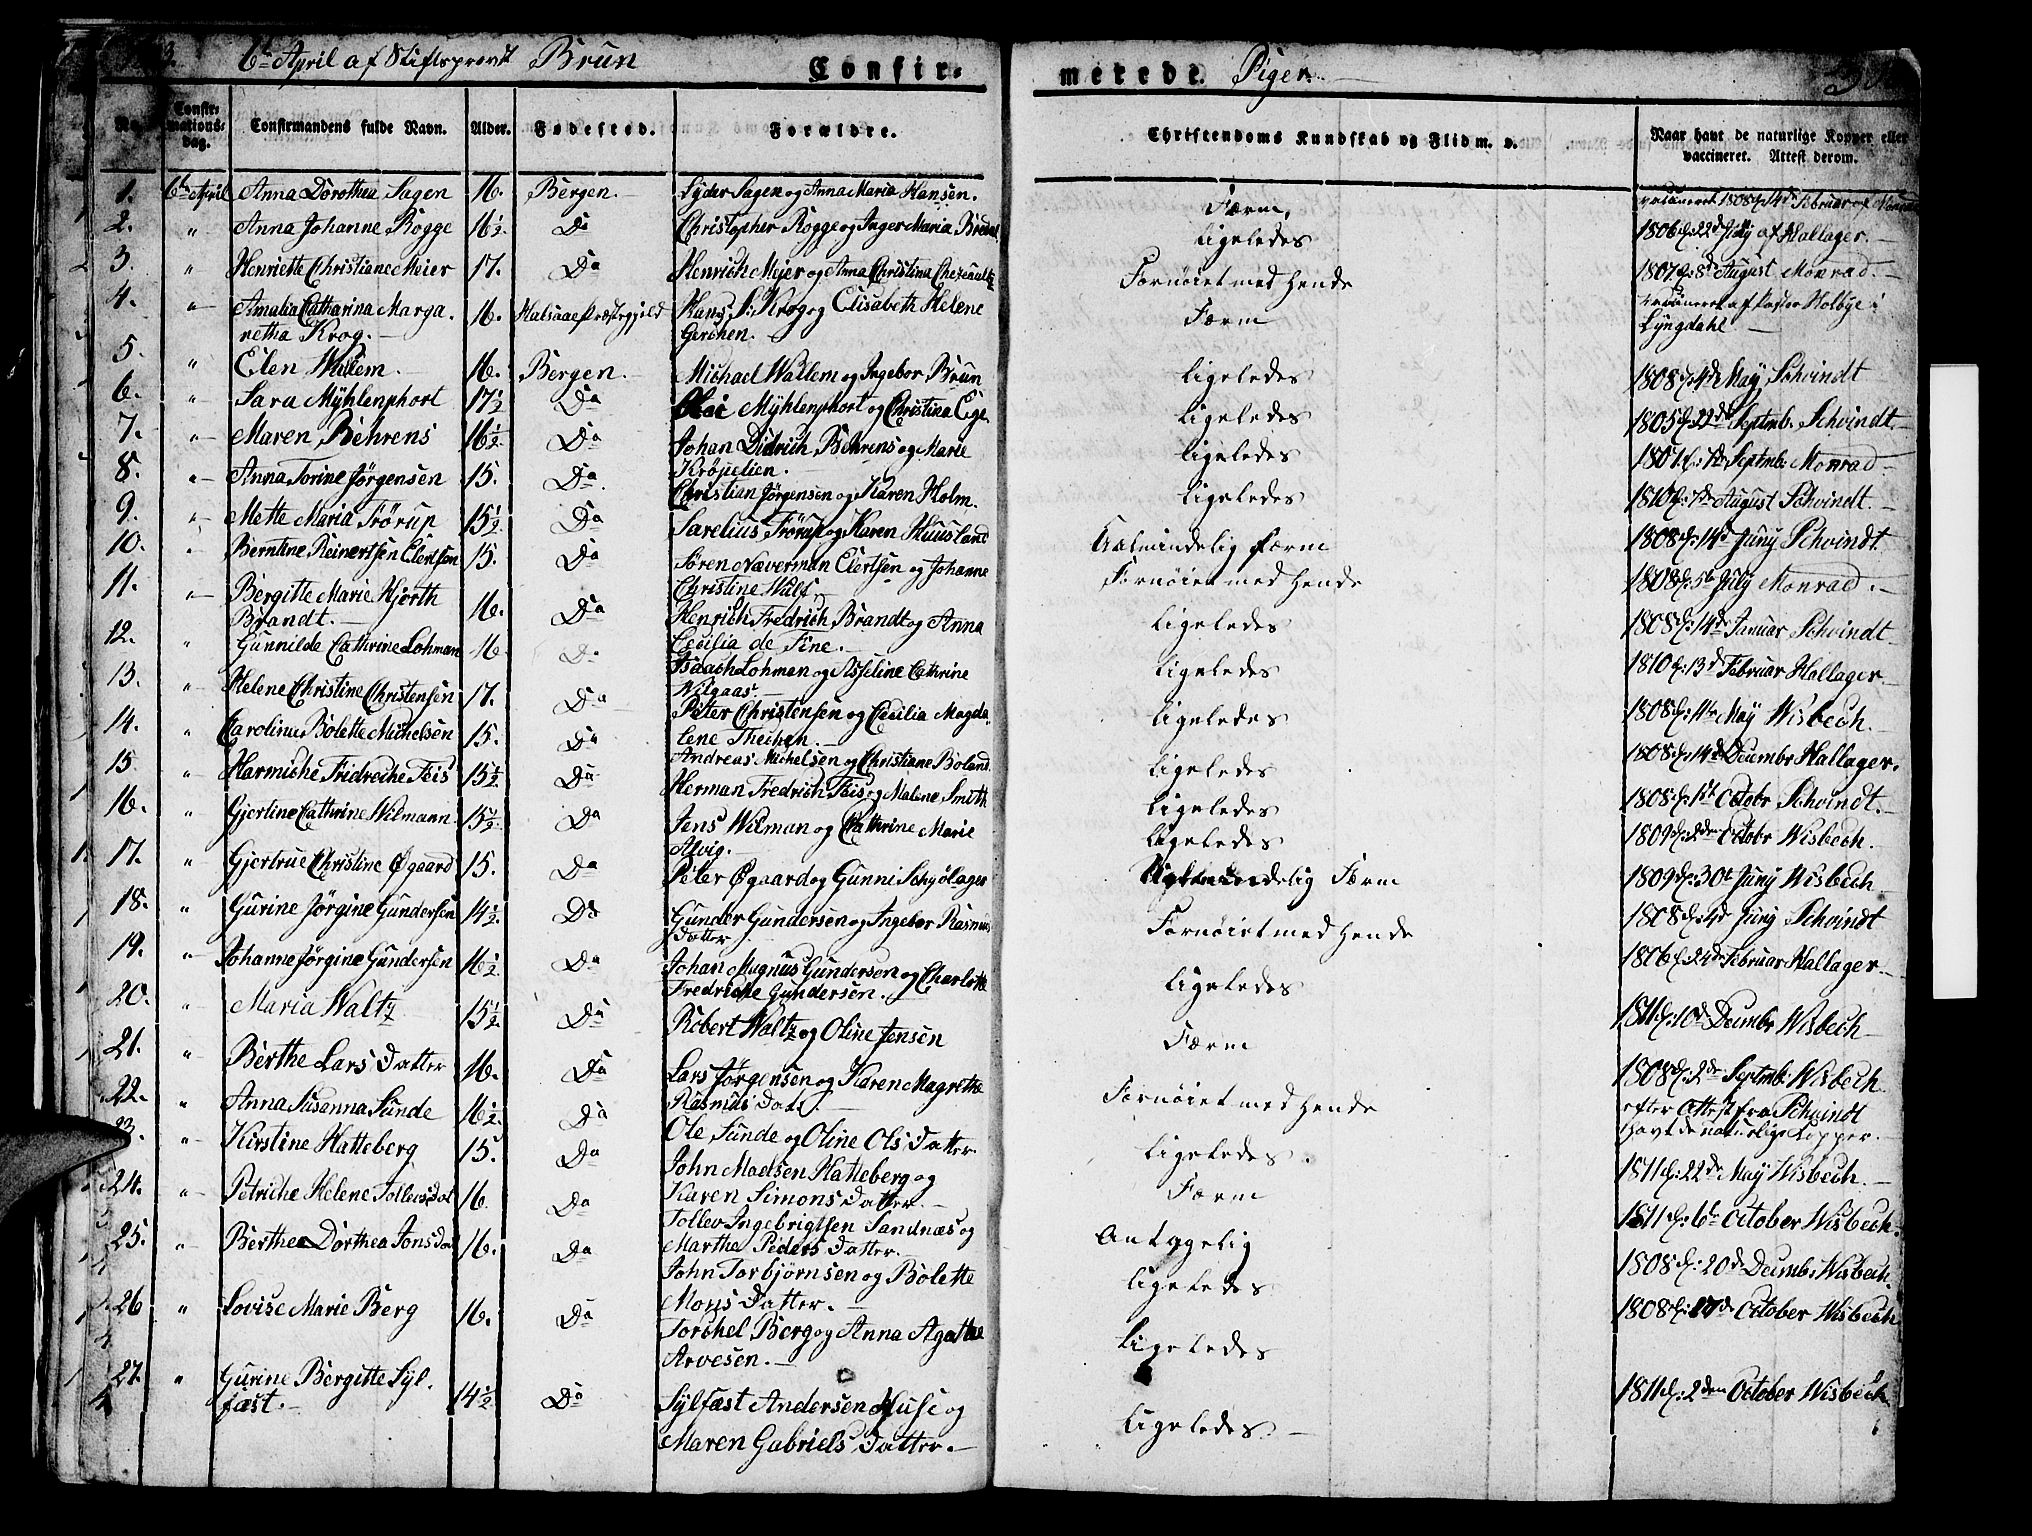 6te April af Stiftsprovst Brun
Confir-
merede. Piger.
No.
Confir-
mations-
dag.
Confirmandens fulde Navn.
Alder.
Fødested.
Forældre.
Christendoms Kundskab og Flid m. v.
Naar havt de naturlige Kopper eller
vaccineret. Attest derom.
1. 6te April Anna Dorothea Sagen 16. Bergen. Lyder Sagen og Anna Maria Hansen. Færm. vaccineret 1808 d: 14d Februar af
2. " Anna Johanne Rogge 16½. Do Christopher Rogge og Inger Maria Færm ligeledes 1806 d: 22d July af Hallager.
3. " Henriette Christiane Meier 17. Do Henrich Meier og Anna Christina Fornøiet med hende 1807 d: 8d August Monrad.
4. " Amalia Catharina Marga-
retha Krog. 16. Halsaae Præstegjeld Hans S: Krog og Elisabeth Helene
Gerchen. Færm vaccineret af Pastor Holbye i
Lyngdahl
5. " Elen Wallem. 16. Bergen. Michael Wallem og Ingebor Brun ligeledes 1808 d: 4d May Schvindt
6. " Sara Mÿhlenphort 17½ Do Mÿhlenphort og Christina Eige ligeledes 1805 d: 22de Septmb. Schvindt.
7. " Maren Behrens 16½. Do Johan Didrich Behrens og Marie
Krøjelien. ligeledes 1801 d: 1d Septmb: Monrad
8. " Anna Torine Jørgensen 15. Do. Christian Jørgensen og Karen Holm. ligeledes 1810 d: 7de August Schvindt.
9. " Mette Maria Trörup 15½. Do Sarelius Trörup og Karen Huusland Aalmindelig Færm 1808 d: 14d Juny Schvindt.
10. " Berntine Reinertsen Elertsen 15. Do Søren Næverman Elertsen og Johanne
Christine Wulf Fornøiet med hende 1808 d: 5te July Monrad.
11. " Bergitte Marie Hjorth
Brandt. 16. Do Henrich Fredrich Brandt og Anna
Cecilia de Fine. ligeledes 1808 d: 14d Januar Schvindt
12. " Gunnilde Cathrine Lohman 16 Do Isaach Lohman og Asseline Cathrine
Wilgaas. ligeledes 1810 d: 13d Februar Hallager.
13. " Helene Christine Christensen 17. Do Peter Christensen og Cecilia Magda-
lene Thechen. ligeledes 1808 d: 11te May Wisbech.
14. " Carolina Bolette Michelsen 15. Do Andreas Michelsen og Christiane Boland. ligeledes 1808 d: 14d Decembr Hallager.
15 " Harmiche Fridreche Feis 15½. Do Herman Fredrich Feis og Malene Smith ligeledes 1808 d: 1te Octobr Schvindt.
16. " Gjertine Cathrine Wilmann 15½. Do Jens Wilman og Cathrine Marie
Alvig. ligeledes 1809 d: 2de Octobr Wisbech.
17. " Gjertrue Christine Øgaard 15. Do Peter Øgaard og Gunni Schydlager Aalmindelig Færm 1809 d: 30t Juny Wisbech
18. " Gurine Jørgine Gundersen 14½. Do Gunder Gundersen og Ingebor Rasmus
Datter Fornøiet med hende 1808 d: 4d Juny Schvindt
19. " Johanne Jørgine Gundersen 16½. Do Johan Magnus Gundersen og Charlotte
Fredriche Gundersen. ligeledes 1806 d: 24de Februar Hallager.
20. " Maria Waltz 15½. Do Robert Waltz og Oline Jensen Færm 1811 d: 10d Decembr Wisbech
21. " Berthe Lars Datter 16. Do Lars Jørgensen og Karen Magrethe
Rasmus Dat. Fornøiet med hende 1808 d: 2de Septmb: Wisbech
22. " Anna Susanna Sunde 16½. Do Ole Sunde og Oline Ols Datter ligeledes. efter Attest fra Schvindt
havt de naturlige Kopper.
23. " Kirstine Hatteberg 15. Do John Madsen Hatteberg og
Karen Simons Datter. Færm 1811 d: 22de May Wisbech.
24. " Petriche Helene Tollevs Dat 16. Do Tollev Ingebrigtsen Sandnæs og
Marthe Peders Datter. Antagelig 1811 d: 6te October Wisbech.
25. " Berthe Dorthea Jons Dat 16. Do John Torbjørnsen og Bolette
Mons Datter. ligeledes 1808 d: 20d Decemb: Wisbech
26 " Lovise Marie Berg 16. Do Torchel Berg og Anna Agathe
Arvesen. ligeledes 1808 d: 17de October Wisbech
27. " Gurine Bergitte Syl-
fæst. 14½ Do Sylfæst Andersen Huse og
Maren Gabriels Datter. ligeledes 1811 d: 2den October Wisbech